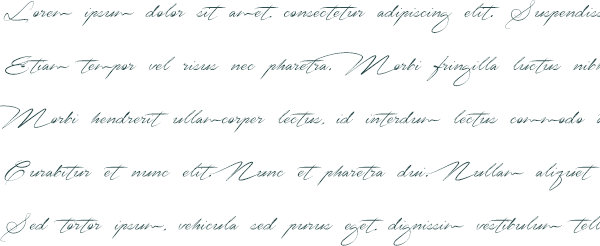 Lorem ipsum dolor sit amet, consectetur adipiscing elit. Suspendiss
Etiam tempor vel risus nec pharetra. Morbi fringilla luctus nibh
Morbi hendrerit ullamcorper lectus, id interdum lectus commodo
Curabitur et nunc elit. Nunc et pharetra dui. Nullam aliquet
Sed tortor ipsum, vehicula sed purus eget, dignissim vestibulum tell